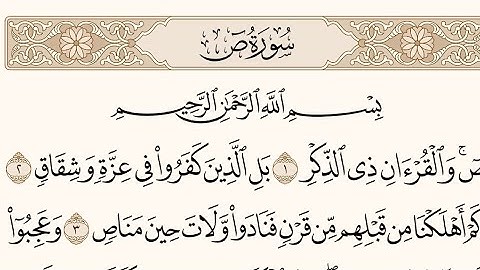 سُورَةُ صٓ
بِسْمِ ٱللَّهِ ٱلرَّحْمَٰنِ ٱلرَّحِيمِ
صٓۚ وَٱلْقُرْءَانِ ذِى ٱلذِّكْرِ ١ بَلِ ٱلَّذِينَ كَفَرُوا۟ فِى عِزَّةٍ وَشِقَاقٍ ٢
كَمْ أَهْلَكْنَا مِن قَبْلِهِم مِّن قَرْنٍ فَنَادَوا۟ وَّلَاتَ حِينَ مَنَاصٍ ٣ وَعَجِبُوٓا۟